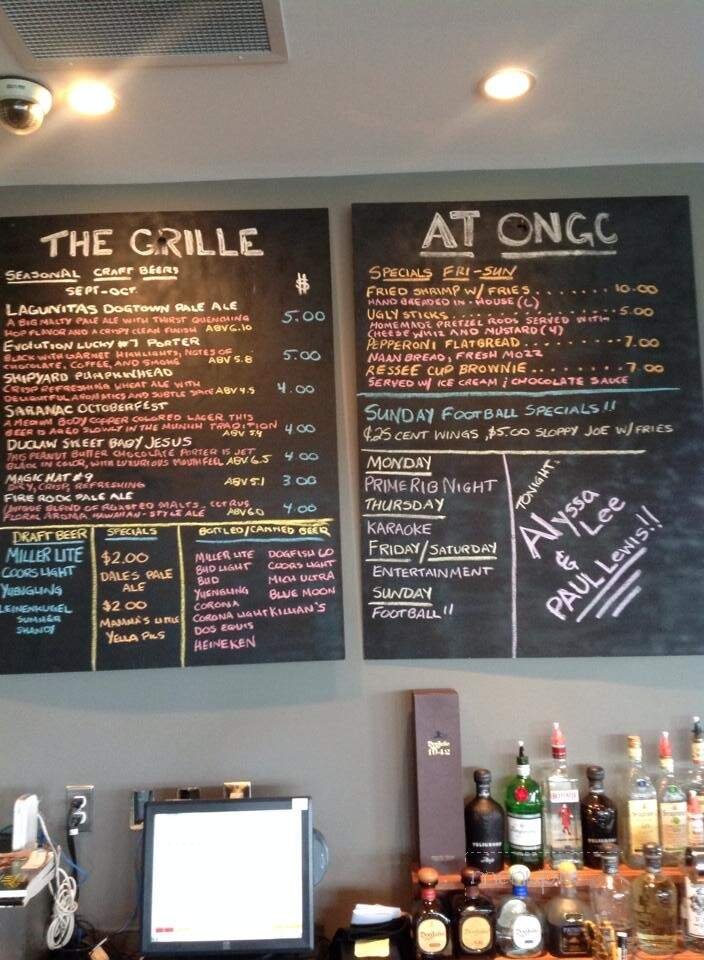 THE GRILLE
SEASONAL CRAFT BEERS
SEPT-OCT.
$
LAGUNITAS DOGTOWN PALE ALE 5.00
A BIG MALTY PALE ALE WITH THIRST QUENCHING
HOP FLAVOR AND A CRISPY CLEAN FINISH ABV 6.10
EVOLUTION LUCKY #7 PORTER 5.00
BLACK WITH GARNET HIGHLIGHTS, NOTES OF
CHOCOLATE, COFFEE, AND SMOKE ABV 5.8
SHIPYARD PUMPKINHEAD 4.00
CRISP REFRESHING WHEAT ALE WITH
DELIGHTFUL AROMATICS AND SUBTLE SPICE ABV 4.5
SARANAC OCTOBERFEST 4.00
A MEDIUM BODY COPPER COLORED LAGER THIS
BEER IS AGED SLOWLY IN THE MUNICH TRADITION
ABV 5.4
DUCLAW SWEET BABY JESUS 4.00
THIS PEANUT BUTTER CHOCOLATE PORTER IS JET
BLACK IN COLOR, WITH LUXURIOUS MOUTHFEEL ABV 6.5
MAGIC HAT #9 3.00
DRY, CRISP, REFRESHING ABV 5.1
FIRE ROCK PALE ALE 4.00
UNIQUE BLEND OF ROASTED MALTS, CITRUS
FLORAL AROMA HAWAIIAN-STYLE ALE ABV 6.0
DRAFT BEER
MILLER LITE
COORS LIGHT
YUENGLING
LEINENKUGEL
SUMMER
SHANDY
SPECIALS
$2.00
DALE'S PALE
ALE
$2.00
MAMMA'S LITTLE
YELLA PILS
BOTTLED/CANNED BEER
MILLER LITE DOGFISH 60
BUD LIGHT COORS LIGHT
BUD MICH ULTRA
YUENGLING BLUE MOON
CORONA KILLIAN'S
CORONA LIGHT
DOS EQUIS
HEINEKEN
AT ONGC
SPECIALS FRI-SUN
FRIED SHRIMP W/ FRIES ........ 10.00
HAND BREADED IN-HOUSE (6)
UGLY STICKS ........ 5.00
HOMEMADE PRETZEL RODS SERVED WITH
CHEESE WHIZ AND MUSTARD (4)
PEPPERONI FLATBREAD ........ 7.00
NAAN BREAD, FRESH MOZZ
REESEE CUP BROWNIE ........ 7.00
SERVED W/ ICE CREAM & CHOCOLATE SAUCE
SUNDAY FOOTBALL SPECIALS!!
$.25 CENT WINGS, $5.00 SLOPPY JOE W/ FRIES
MONDAY
PRIME RIB NIGHT
THURSDAY
KARAOKE
FRIDAY/SATURDAY
ENTERTAINMENT
SUNDAY
FOOTBALL!!
TONIGHT:
Alyssa
Lee
&
PAUL Lewis!!
Don Julio
1942